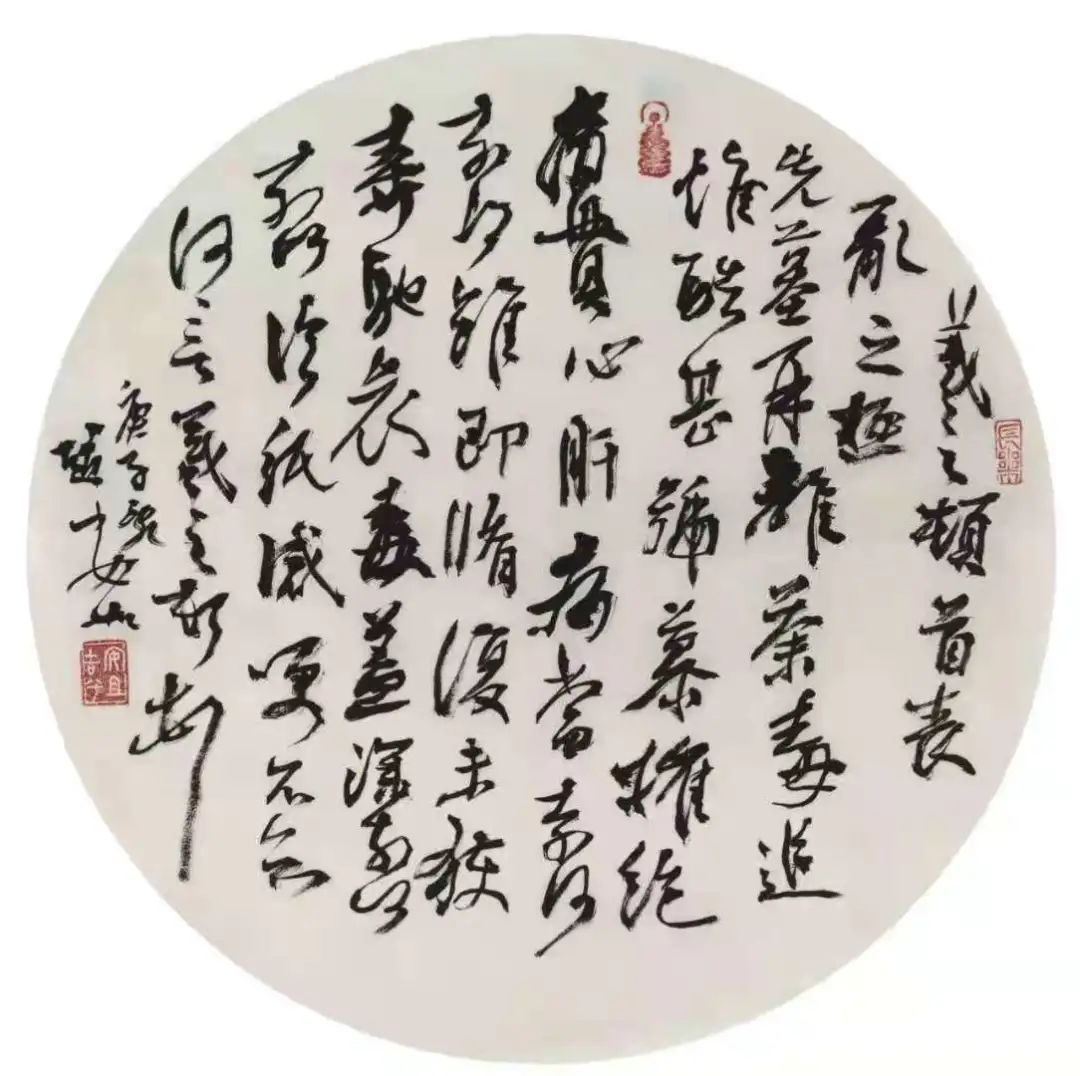 羲之頓首喪
亂之極
先墓再離荼毒追
惟酷甚號慕摧絕
痛貫心肝痛當奈何
奈何雖即脩復未獲
奔馳哀毒益深奈何
奈何臨紙感哽不知
何言羲之頓首
庚子
長樂